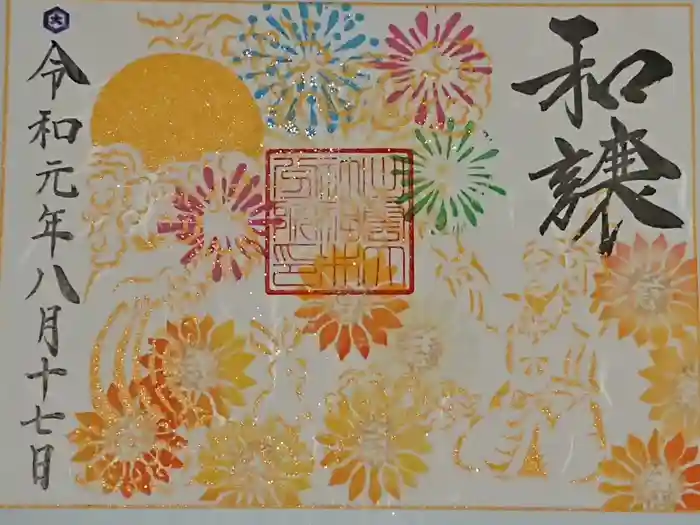 和譲
令和元年八月十七日